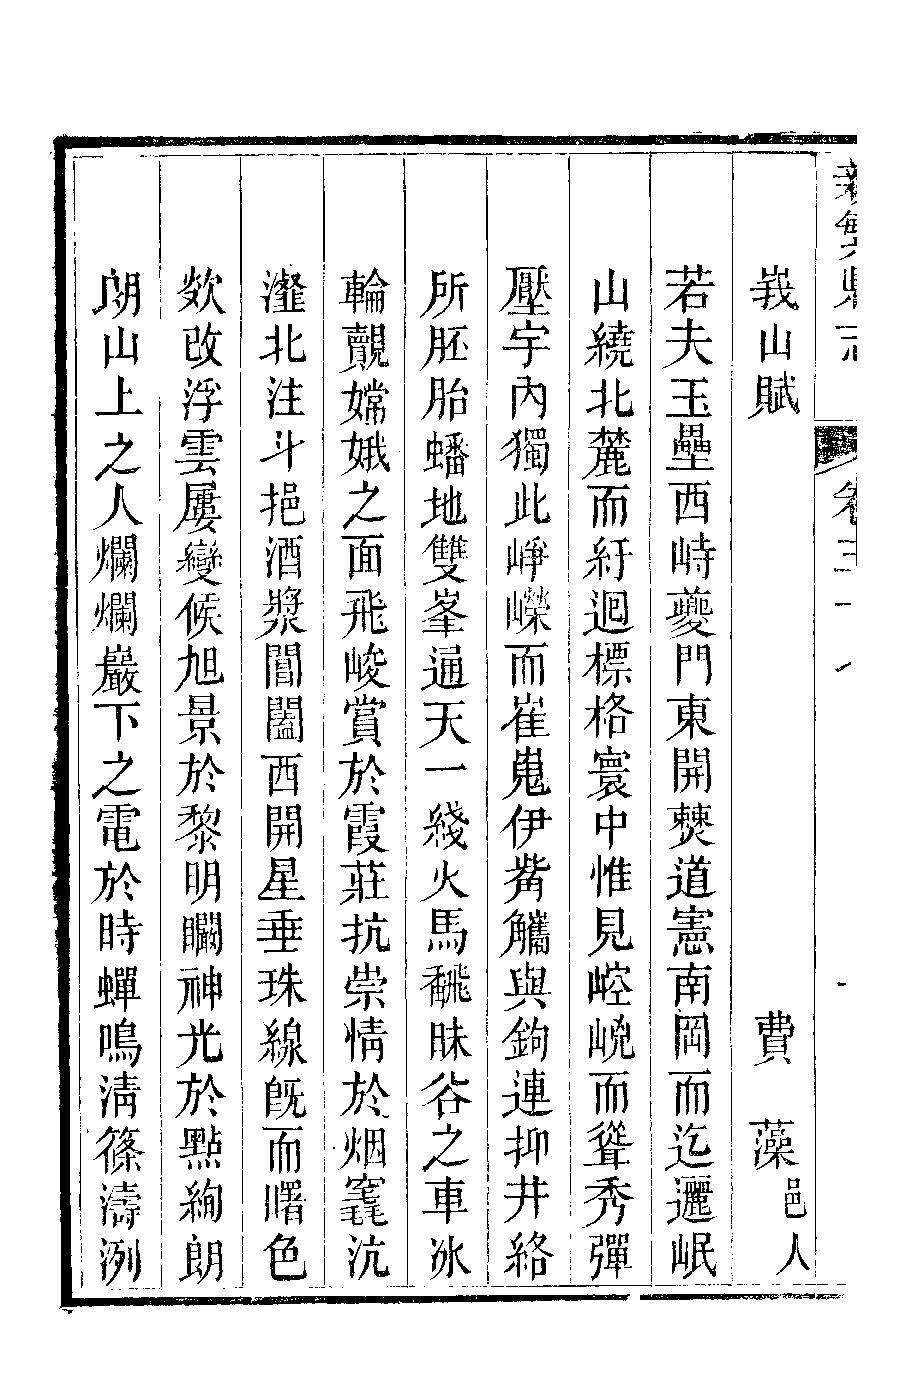 峩山賦
費藻邑人
若夫玉壘西峙夔門東開僰道憲南岡而迄邐岷
山繞北麓而紆迴標格寰中惟見崆峣而聳秀彈
壓宇內獨此崢嶸而崔嵬伊觜觿與鉤連抑井絡
所胚胎蟠地雙峯通天一綫火馬飜昧谷之車冰
輪覿嫦娥之面飛峻賞於霞莊抗崇情於烟竁沆
瀣北注斗挹酒漿閶闔西開星垂珠線旣而曙色
欻改浮雲屢變候旭景於黎明矙神光於點絢朗
朗山上之人爛爛巖下之電於時蟬鳴淸篠濤洌